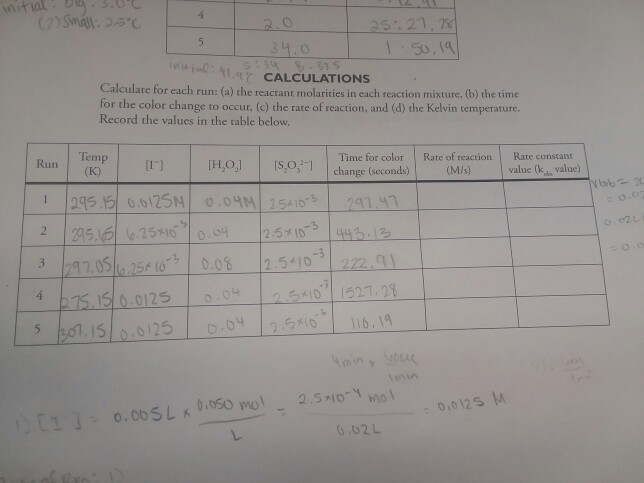 initial: big: 3.0°C
(2) Small: 2.5°C
4 2.0 25:27.28
5 34.0 1:50.19
initial: 41.9°C
CALCULATIONS
Calculate for each run: (a) the reactant molarities in each reaction mixture, (b) the time
for the color change to occur, (c) the rate of reaction, and (d) the Kelvin temperature.
Record the values in the table below.
Run Temp (K) [I⁻] [H₂O₂] [S₂O₃²⁻] Time for color change (seconds) Rate of reaction (M/s) Rate constant value (k_obs value)
1 295.15 0.0125M 0.04M 2.5×10⁻³ 297.47
2 295.65 6.25×10⁻³ 0.04 2.5×10⁻³ 443.13
3 297.05 6.25×10⁻³ 0.08 2.5×10⁻³ 222.91
4 275.15 0.0125 0.04 2.5×10⁻³ 1527.28
5 307.15 0.0125 0.04 2.5×10⁻³ 116.19
4min × 60sec
1min
1) [I⁻] = 0.005L × 0.050 mol / L = 2.5×10⁻⁴ mol / 0.02L = 0.0125 M